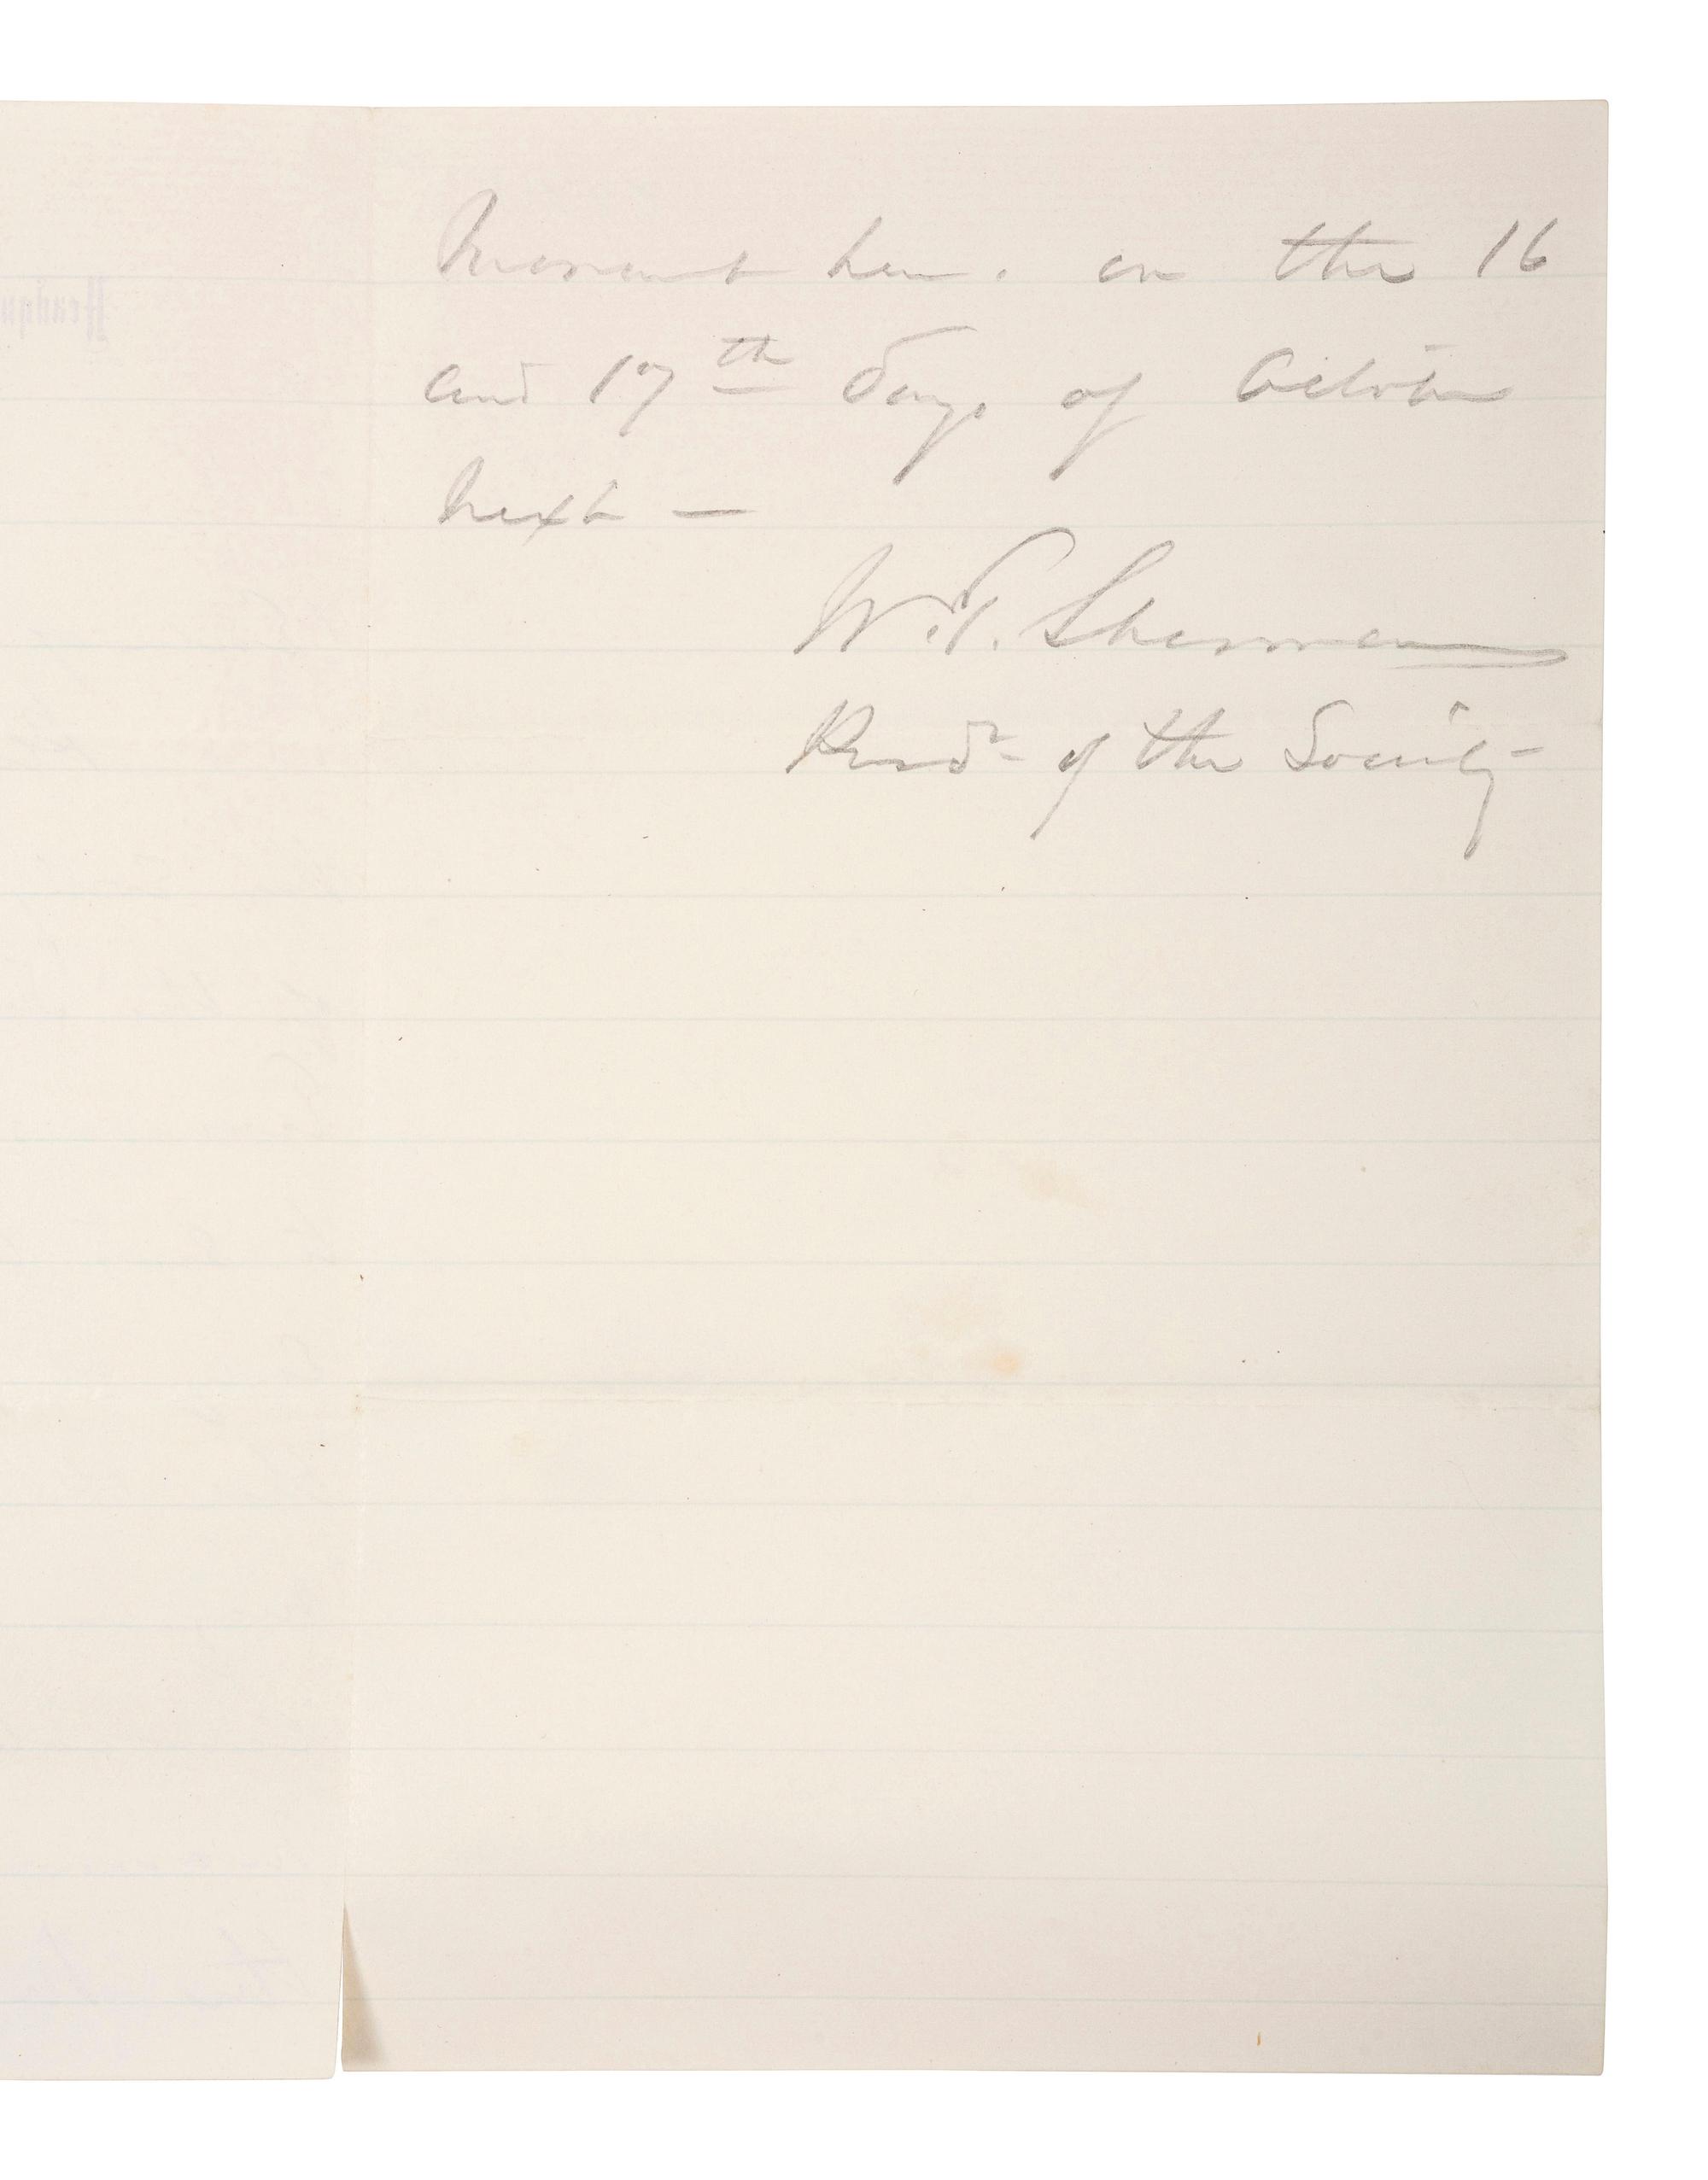 Monument here. on the 16
and 17th days of October
next —
W.T. Sherman
Presdt of the Society